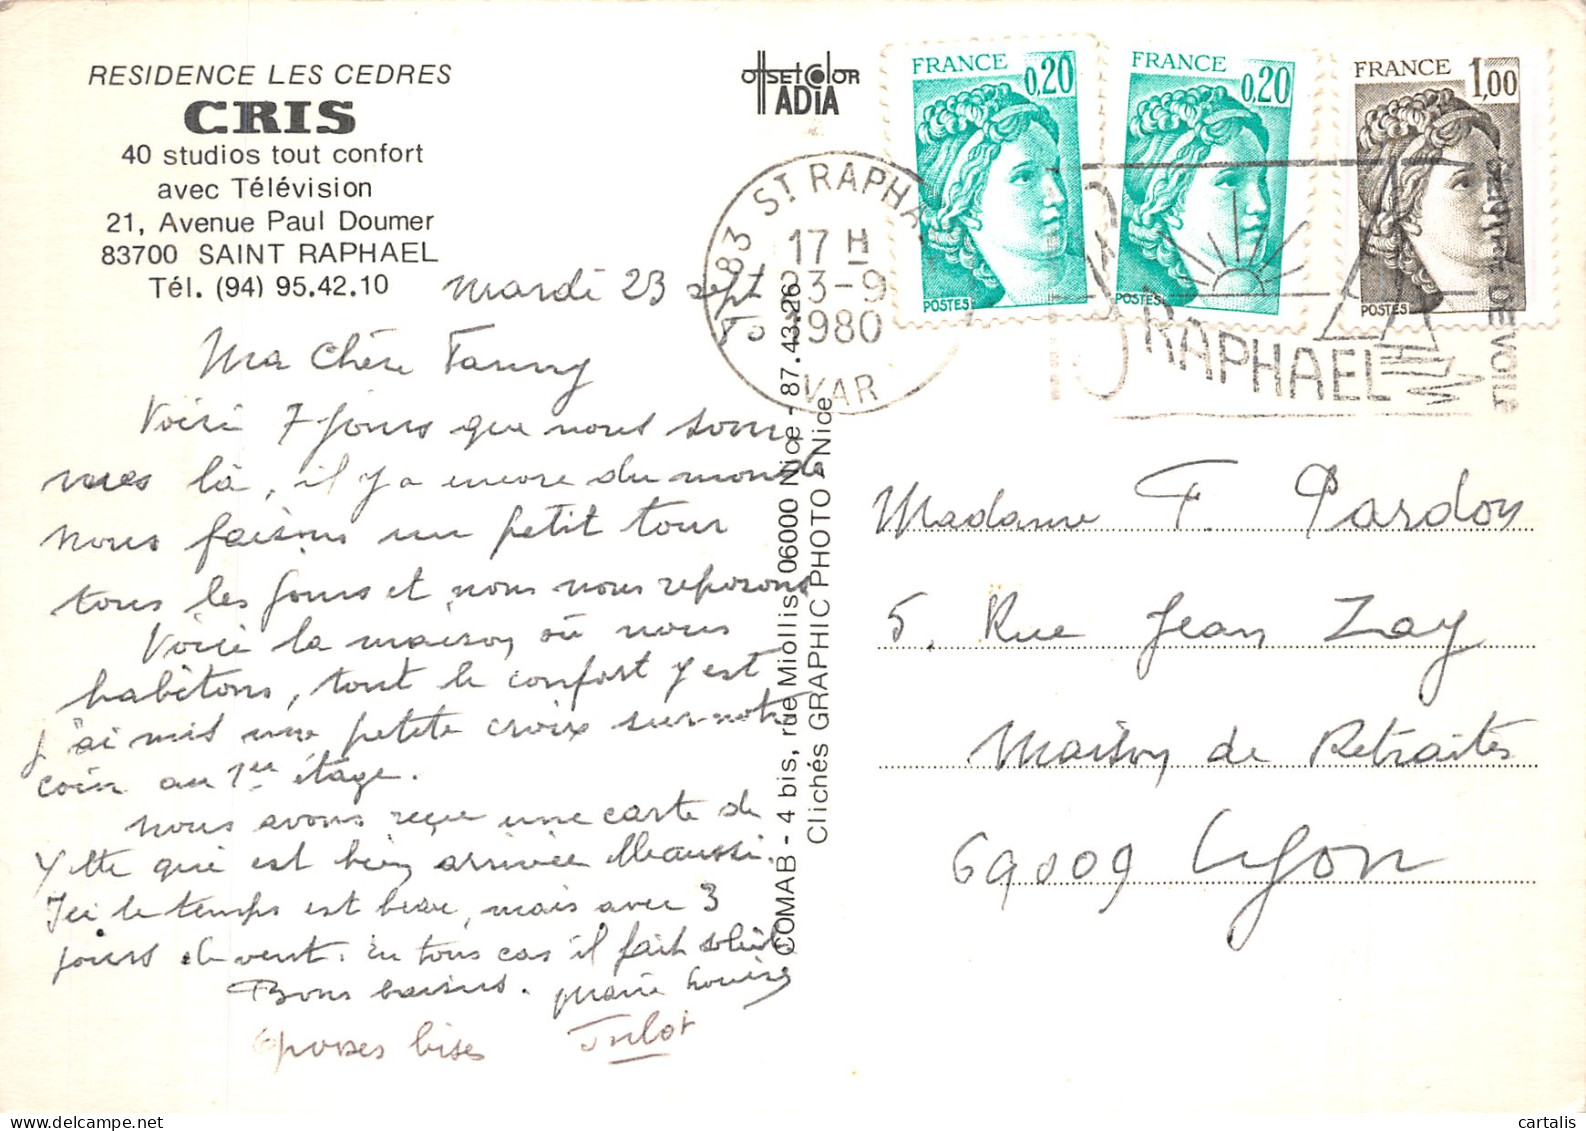 RESIDENCE LES CEDRES
CRIS
40 studios tout confort
avec Télévision
21, Avenue Paul Doumer
83700 SAINT RAPHAEL
Tél. (94) 95.42.10
OFFSET COLOR
ADIA
FRANCE 0,20
POSTES
FRANCE 0,20
POSTES
FRANCE 1,00
POSTES
83 ST RAPHA
17 H
23-9
1980
VAR
ST RAPHAEL
DE VOILE
mardi 23 sept
Ma chère Fanny
Voici 7 jours que nous som
mes là, il y a encore du monde
nous faisons un petit tour
tous les jours et nous nous reposons
Voici la maison où nous
habitons, tout le confort y est
j'ai mis une petite croix sur notre
coin au 1er étage.
nous avons reçue une carte de
Yette qui est bien arrivée
Ici le temps est beau, mais avec 3
jours de vent. En tous cas il fait soleil
Bons baisers. Marie Louise
grosses bises Julot
COMAB - 4 bis, rue Miollis 06000 Nice - 87.43.26
Clichés GRAPHIC PHOTO - Nice
Madame F. Pardon
5. Rue Jean Zay
Maison de Retraites
69009 Lyon
cartalis